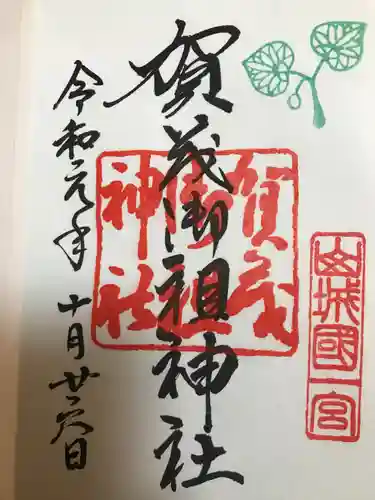 山城國一宮
賀茂御祖神社
賀茂御祖神社
令和元年 十月廿六日